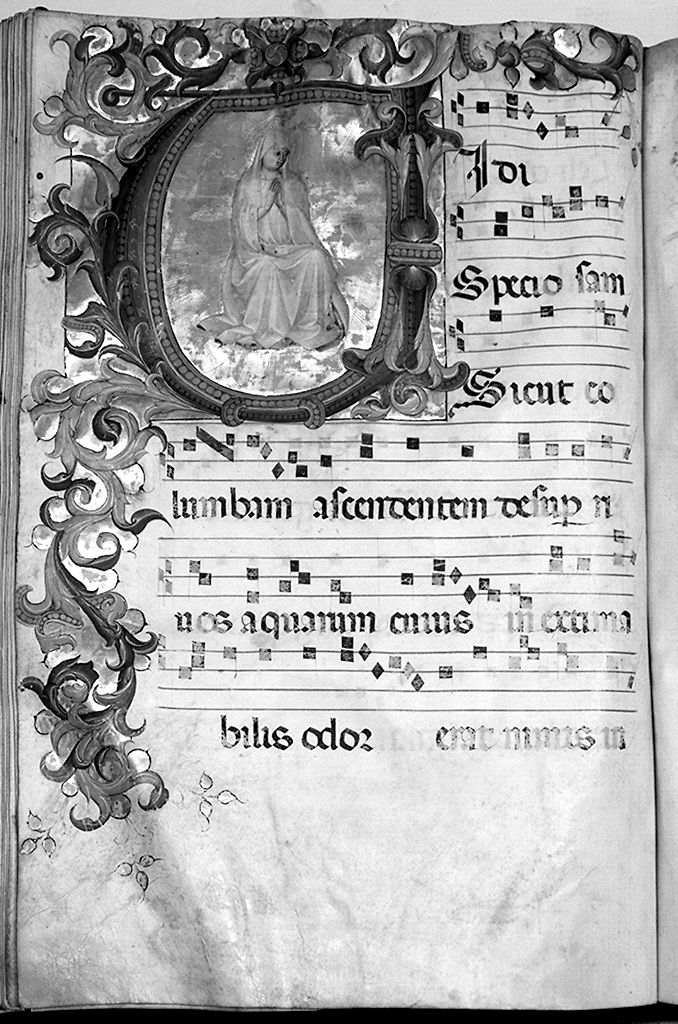 VIdi
Speciosam
Sicut co
lumbam ascendentem desup ri
uos aquarum cuius inextima
bilis odor erat nimis in